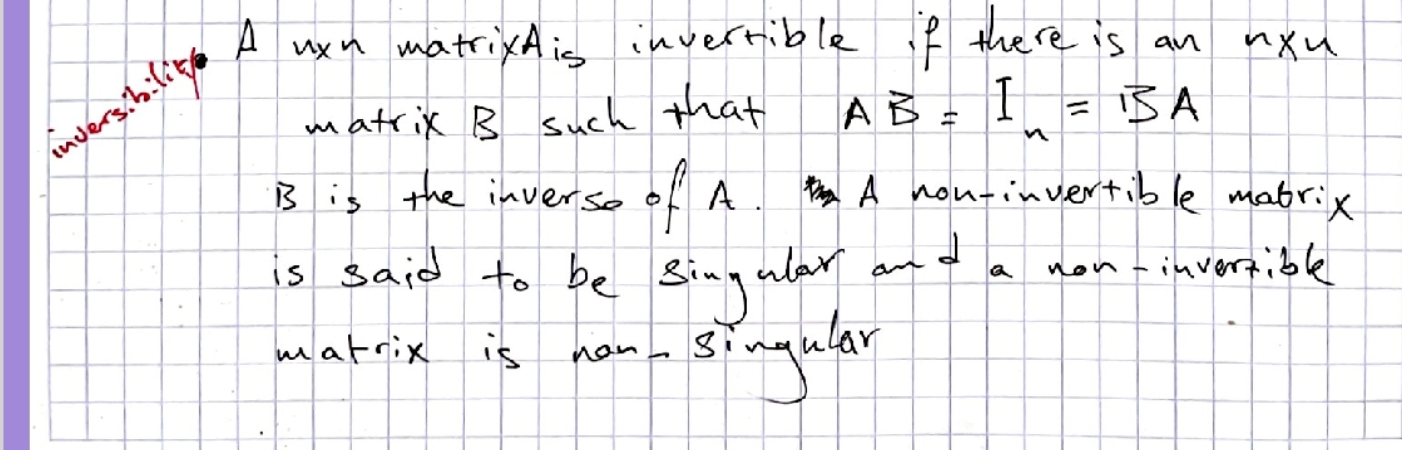 inversibility
A nxn matrix A is invertible if there is an nxn
matrix B such that AB = Iₙ = BA
B is the inverse of A. A non-invertible matrix
is said to be singular and a non-invertible
matrix is non-singular